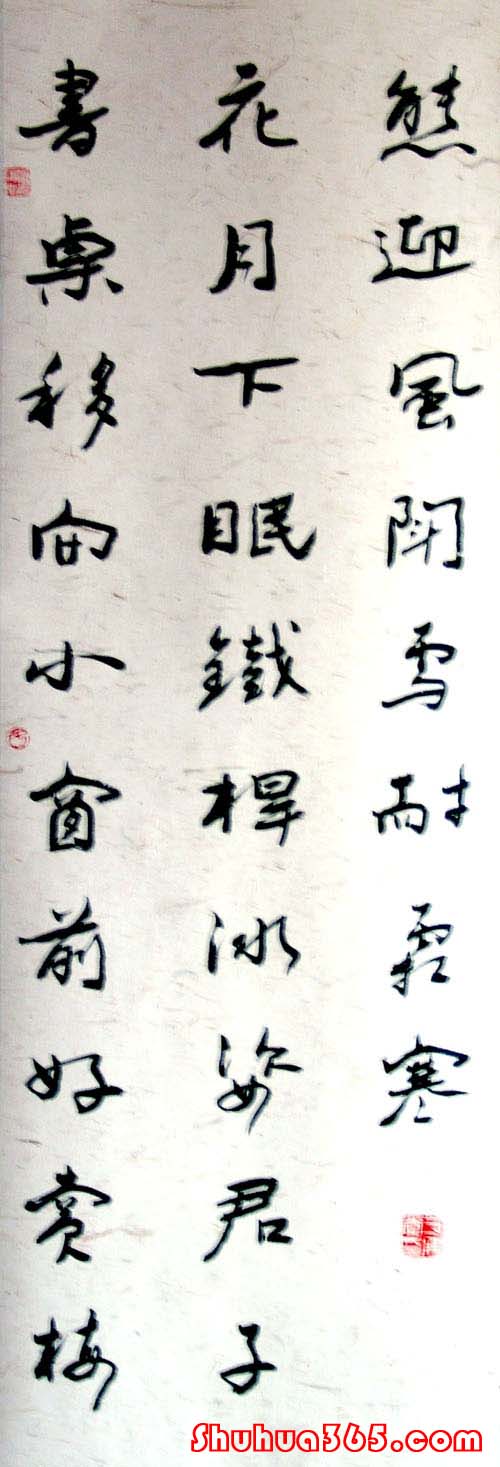 書桌移向小窗前好賞梅
花月下眠鐵桿冰姿君子
態迎風鬥雪耐霜寒
Shuhua365.com